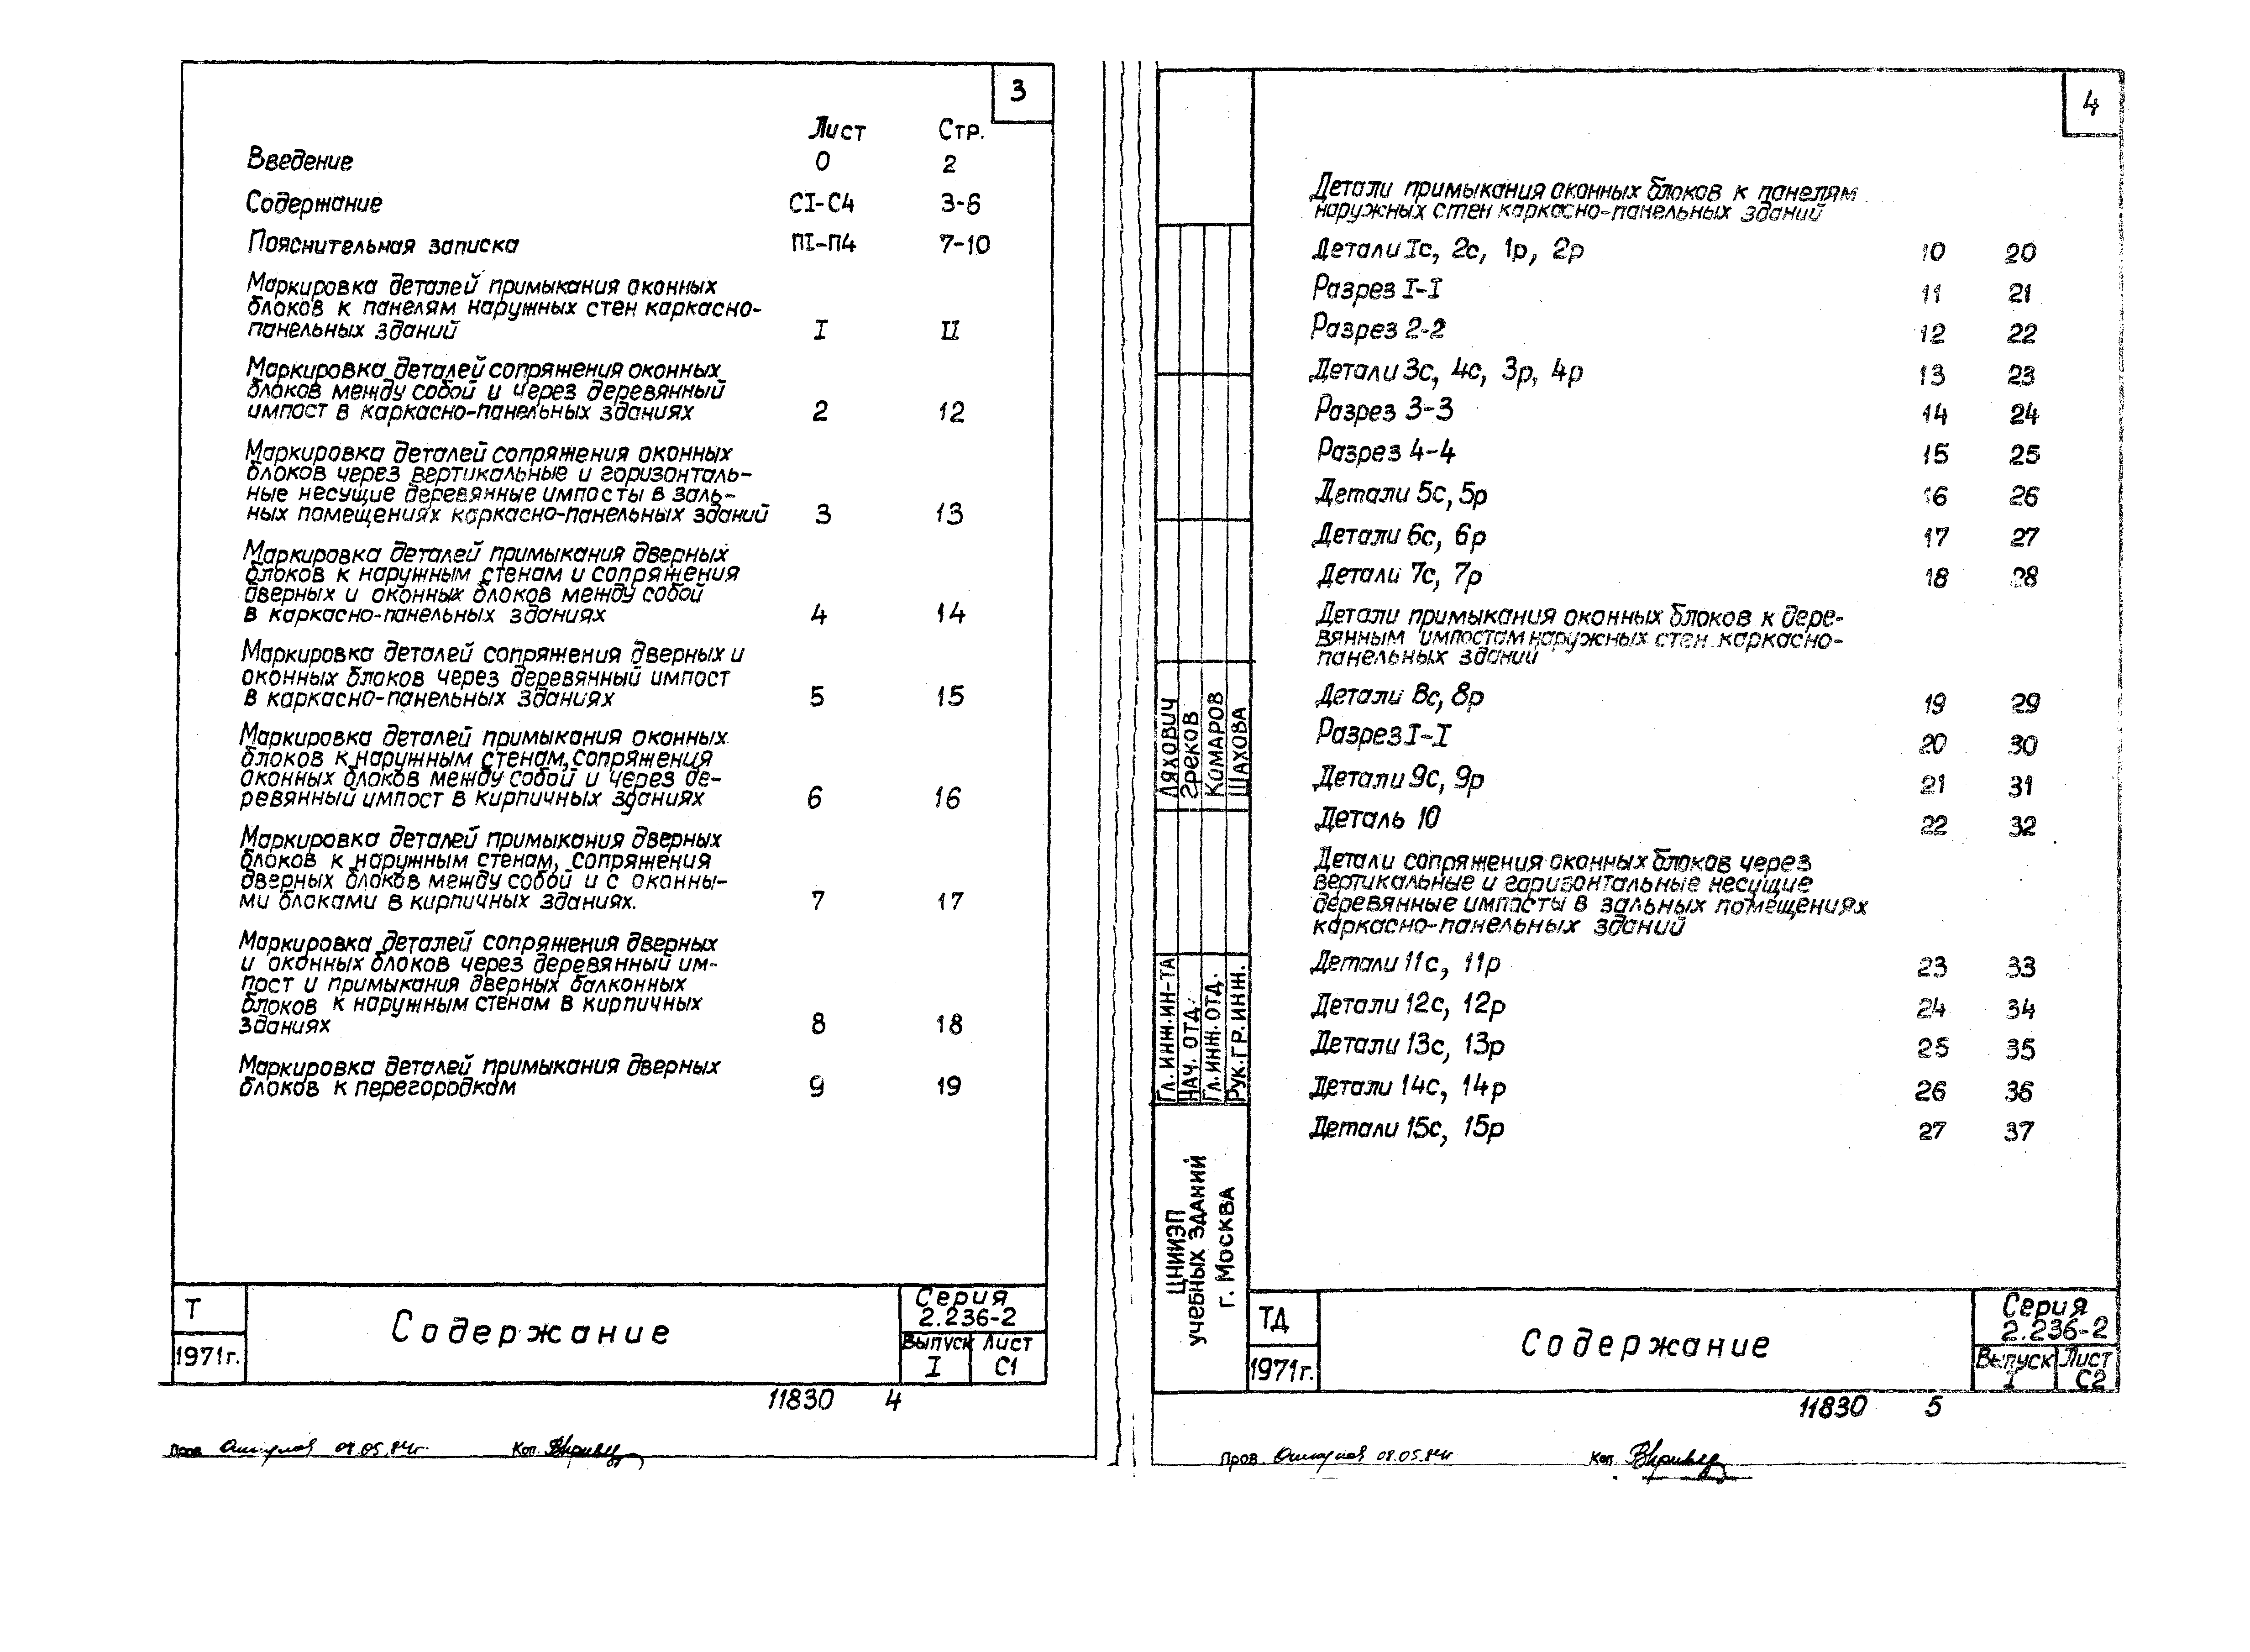 3
Лист Стр.
Введение 0 2
Содержание CI-C4 3-6
Пояснительная записка ПI-П4 7-10
Маркировка деталей примыкания оконных
блоков к панелям наружных стен каркасно-
панельных зданий I II
Маркировка деталей сопряжения оконных
блоков между собой и через деревянный
импост в каркасно-панельных зданиях 2 12
Маркировка деталей сопряжения оконных
блоков через вертикальные и горизонталь-
ные несущие деревянные импосты в заль-
ных помещениях каркасно-панельных зданий 3 13
Маркировка деталей примыкания дверных
блоков к наружным стенам и сопряжения
дверных и оконных блоков между собой
в каркасно-панельных зданиях 4 14
Маркировка деталей сопряжения дверных и
оконных блоков через деревянный импост
в каркасно-панельных зданиях 5 15
Маркировка деталей примыкания оконных
блоков к наружным стенам, сопряжения
оконных блоков между собой и через де-
ревянный импост в кирпичных зданиях 6 16
Маркировка деталей примыкания дверных
блоков к наружным стенам, сопряжения
дверных блоков между собой и с оконны-
ми блоками в кирпичных зданиях. 7 17
Маркировка деталей сопряжения дверных
и оконных блоков через деревянный им-
пост и примыкания дверных балконных
блоков к наружным стенам в кирпичных
зданиях 8 18
Маркировка деталей примыкания дверных
блоков к перегородкам 9 19
Т
1971г.
Содержание
Серия
2.236-2
Выпуск Лист
I C1
11830 4
Пров. 08.05.84г. Коп.
4
Детали примыкания оконных блоков к панелям
наружных стен каркасно-панельных зданий
Детали Iс, 2с, 1р, 2р 10 20
Разрез I-I 11 21
Разрез 2-2 12 22
Детали 3с, 4с, 3р, 4р 13 23
Разрез 3-3 14 24
Разрез 4-4 15 25
Детали 5с, 5р 16 26
Детали 6с, 6р 17 27
Детали 7с, 7р 18 28
Детали примыкания оконных блоков к дере-
вянным импостам наружных стен каркасно-
панельных зданий
Детали 8с, 8р 19 29
Разрез I-I 20 30
Детали 9с, 9р 21 31
Деталь 10 22 32
Детали сопряжения оконных блоков через
вертикальные и горизонтальные несущие
деревянные импосты в зальных помещениях
каркасно-панельных зданий
Детали 11с, 11р 23 33
Детали 12с, 12р 24 34
Детали 13с, 13р 25 35
Детали 14с, 14р 26 36
Детали 15с, 15р 27 37
Гл. инж. ин-та Ляхович
Нач. отд. Греков
Гл. инж. отд. Комаров
Рук. гр. инж. Шахова
ЦНИИЭП
учебных зданий
г. Москва
ТД
1971г.
Содержание
Серия
2.236-2
Выпуск Лист
I C2
11830 5
Пров. 08.05.84г. Коп.